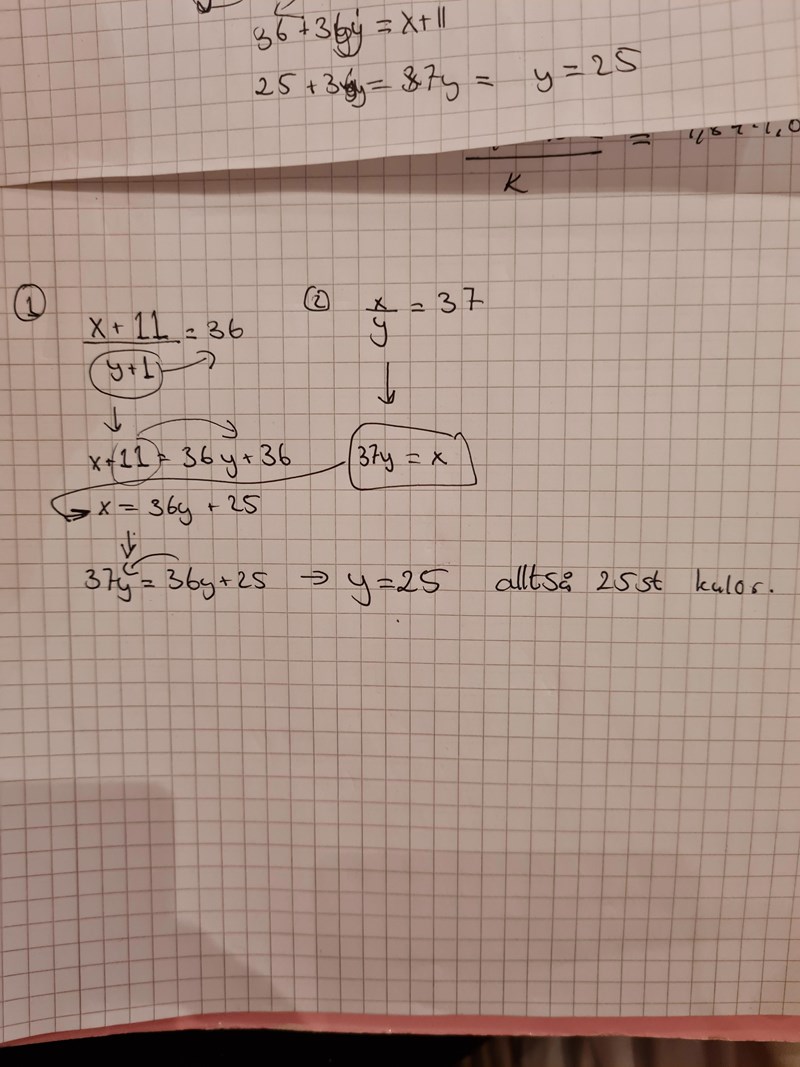 36 + 36y = x+11
25 + 36y = 37y = y = 25
K
① x + 11 / y+1 = 36
② x / y = 37
x+11 = 36y + 36
37y = x
x = 36y + 25
37y = 36y + 25 → y = 25 alltså 25st kulor.